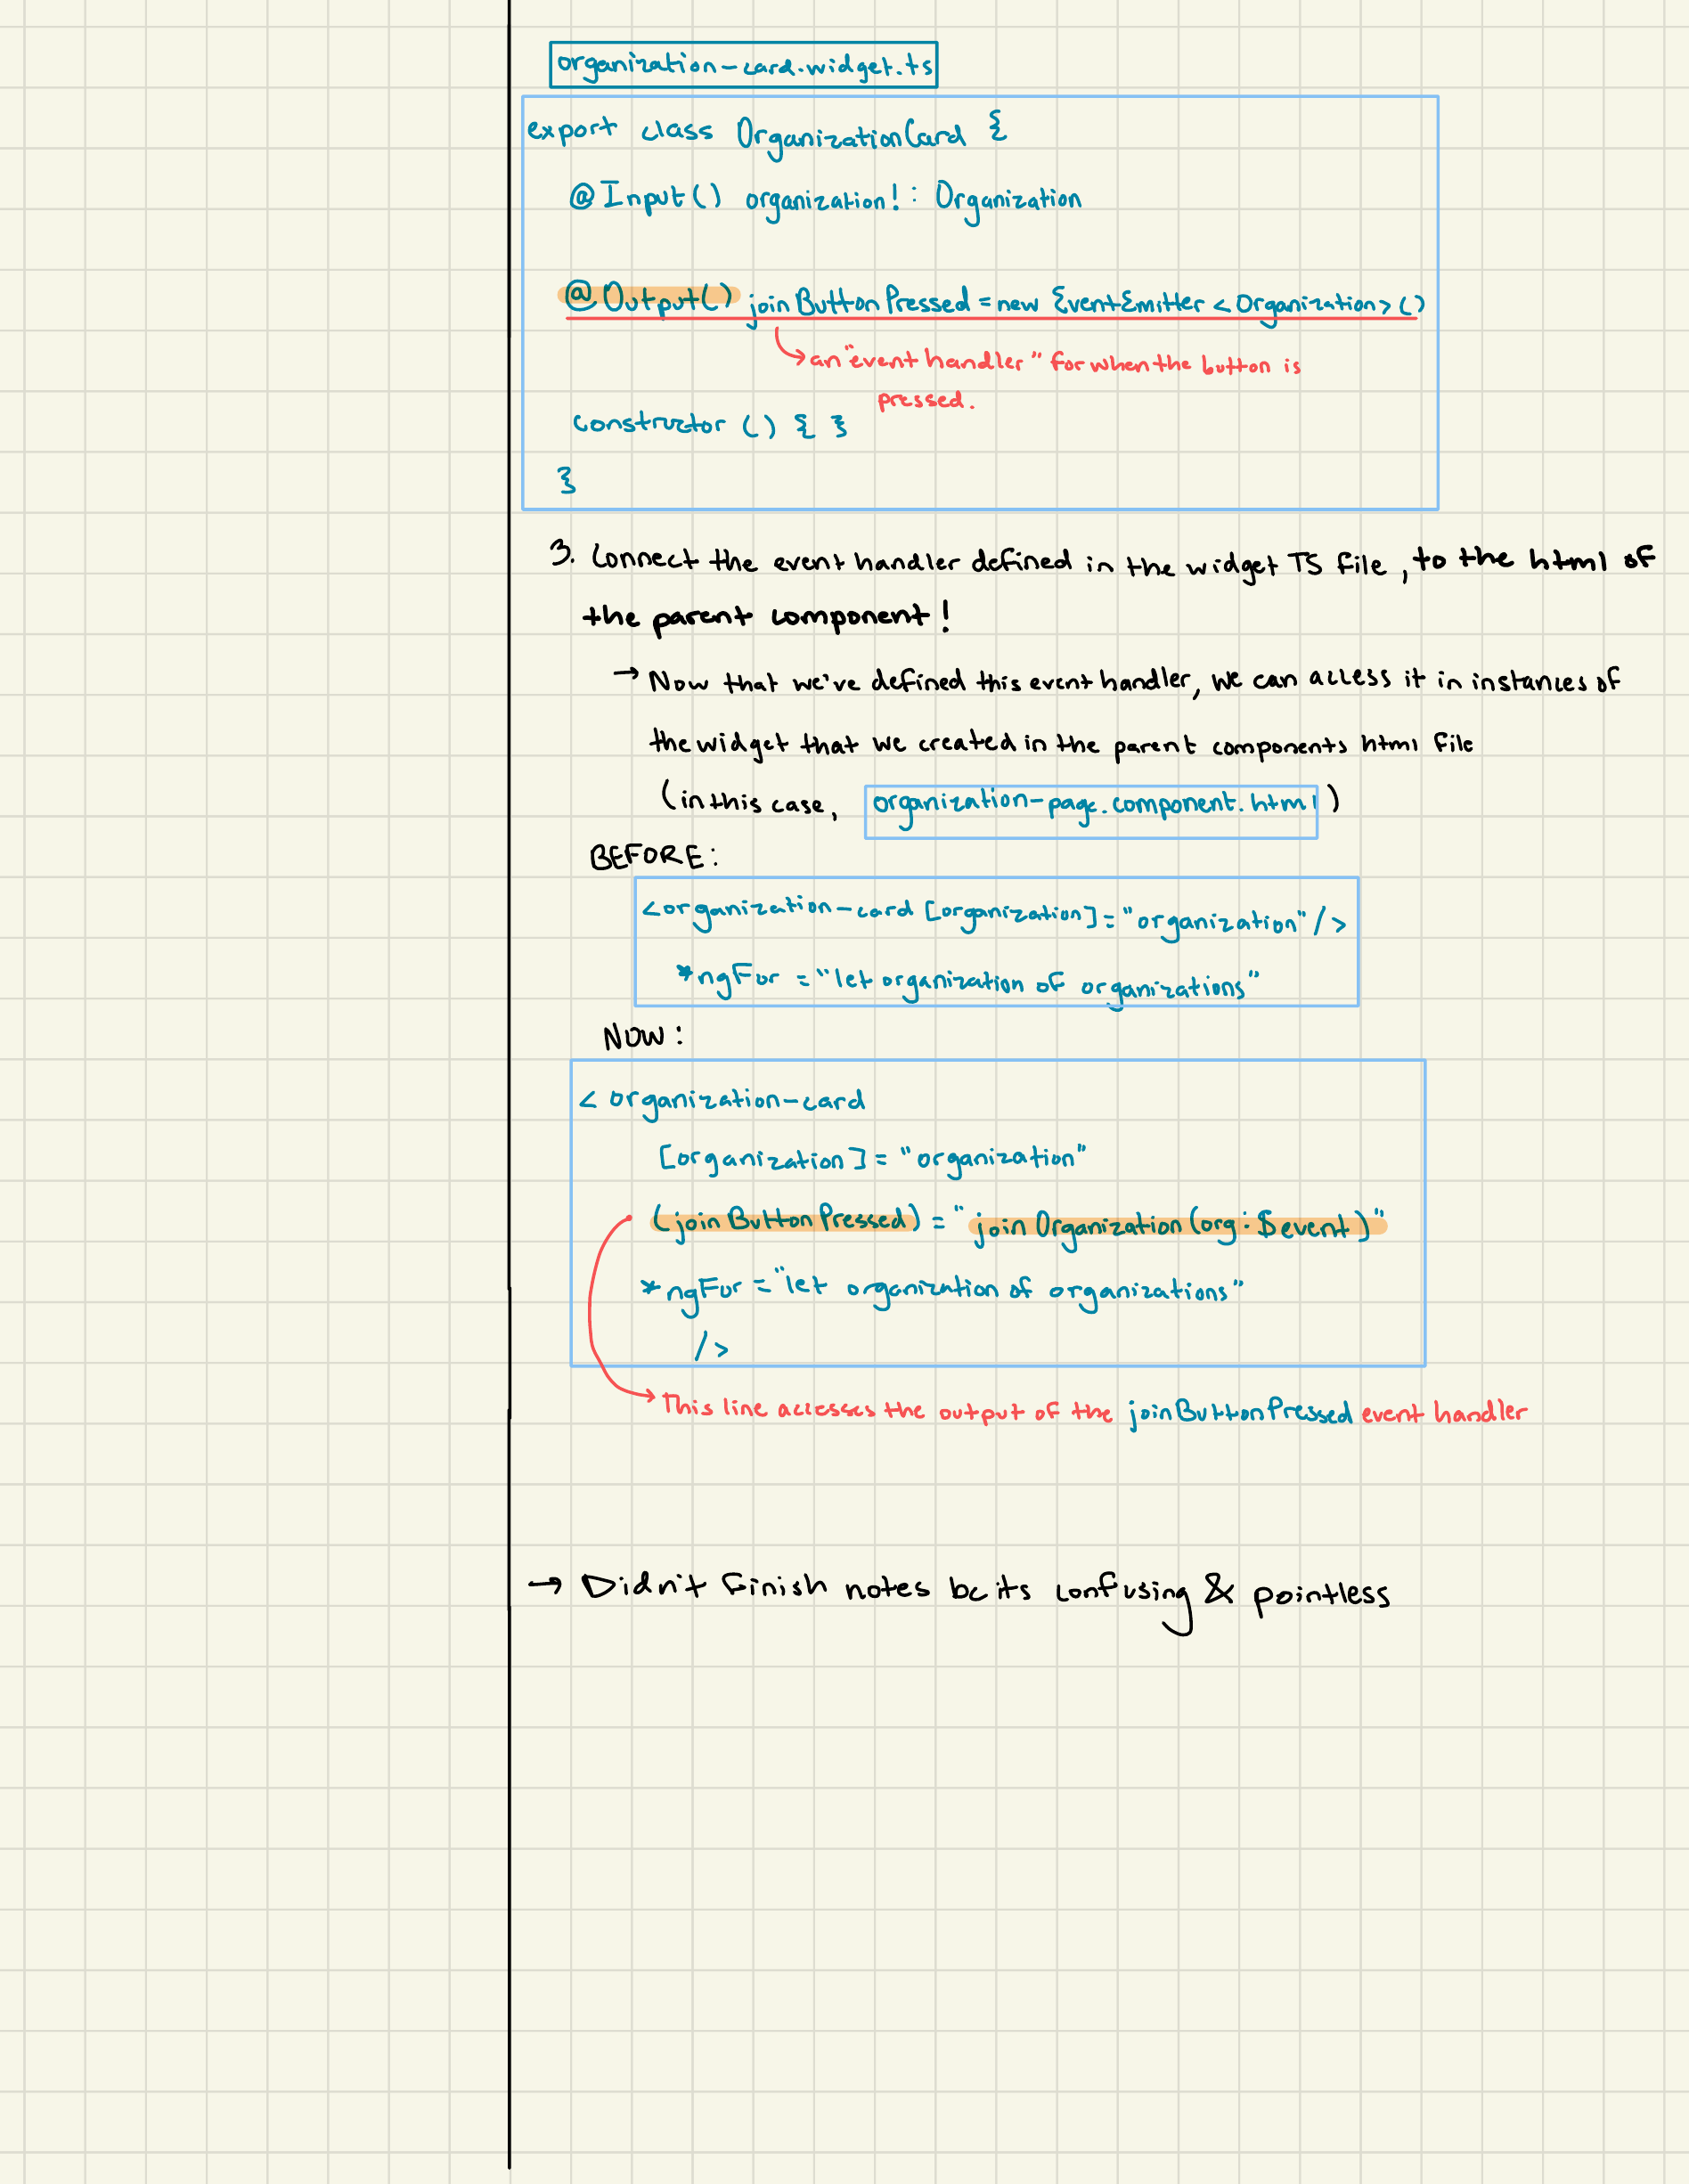 organization-card.widget.ts
export class OrganizationCard {
@Input() organization!: Organization
@Output() joinButtonPressed = new EventEmitter <Organization> ()
an "event handler" for when the button is
pressed.
constructor () { }
}
3. Connect the event handler defined in the widget TS file, to the html of
the parent component!
→ Now that we've defined this event handler, we can access it in instances of
the widget that we created in the parent components html file
(in this case, organization-page.component.html)
BEFORE:
<organization-card [organization]="organization"/>
*ngFor = "let organization of organizations"
NOW:
< organization-card
[organization] = "organization"
(joinButtonPressed) = "joinOrganization(org: $event)"
*ngFor = "let organization of organizations"
/>
This line accesses the output of the joinButtonPressed event handler
→ Didn't finish notes bc its confusing & pointless